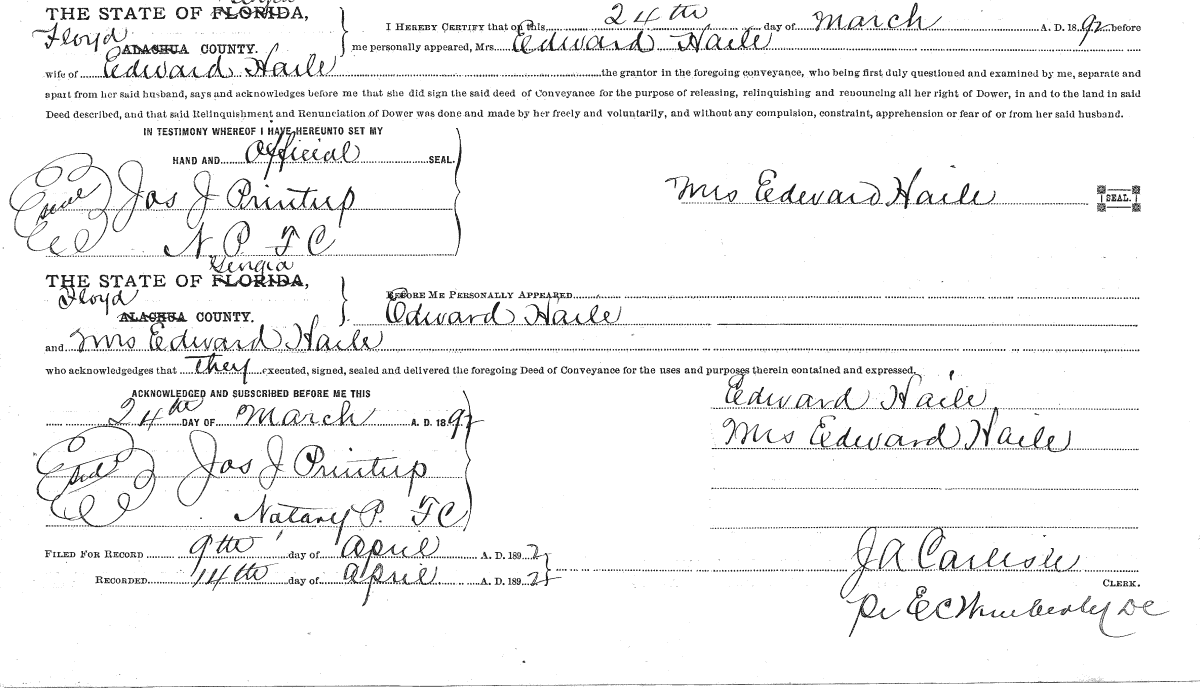 Georgia
THE STATE OF FLORIDA,
Floyd
ALACHUA COUNTY.
I HEREBY CERTIFY that on this 24th day of March A. D. 1892 before
me personally appeared, Mrs. Edward Haile
wife of Edward Haile the grantor in the foregoing conveyance, who being first duly questioned and examined by me, separate and
apart from her said husband, says and acknowledges before me that she did sign the said deed of Conveyance for the purpose of releasing, relinquishing and renouncing all her right of Dower, in and to the land in said
Deed described, and that said Relinquishment and Renunciation of Dower was done and made by her freely and voluntarily, and without any compulsion, constraint, apprehension or fear of or from her said husband.
IN TESTIMONY WHEREOF I HAVE HEREUNTO SET MY
HAND AND Official SEAL.
seal Jos J Printup
N. P. F C
Mrs Edward Haile SEAL.
Georgia
THE STATE OF FLORIDA,
Floyd
ALACHUA COUNTY.
BEFORE ME PERSONALLY APPEARED
Edward Haile
and Mrs Edward Haile
who acknowledges that they executed, signed, sealed and delivered the foregoing Deed of Conveyance for the uses and purposes therein contained and expressed.
ACKNOWLEDGED AND SUBSCRIBED BEFORE ME THIS
24th DAY OF March A. D. 1892
seal Jos J Printup
Notary P. F C
Edward Haile
Mrs Edward Haile
FILED FOR RECORD 9th day of April A. D. 1892
RECORDED 14th day of April A. D. 1892
J A Carlisle
CLERK.
Pr E C Wimberly DC